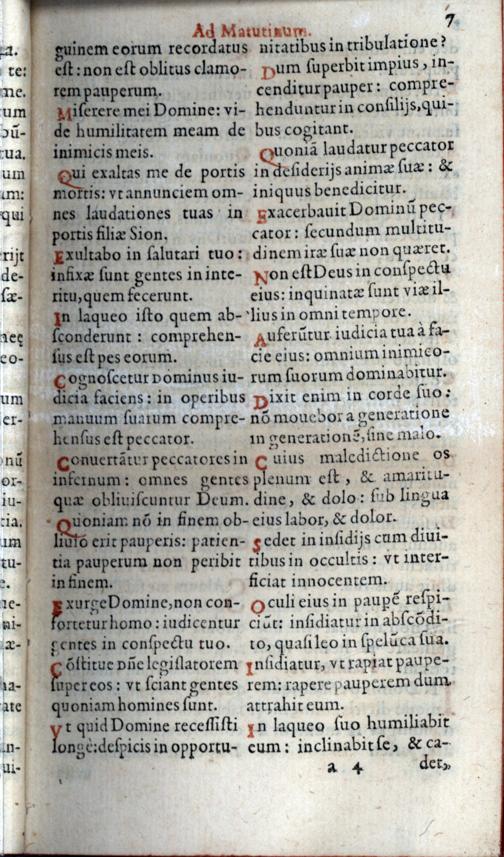 Ad Matutinum.
7
guinem eorum recordatus
est: non est oblitus clamo-
rem pauperum.
Miserere mei Domine: vi-
de humilitatem meam de
inimicis meis.
Qui exaltas me de portis
mortis: vt annunciem om-
nes laudationes tuas in
portis filiæ Sion.
Exultabo in salutari tuo:
infixæ sunt gentes in inte-
ritu, quem fecerunt.
In laqueo isto quem ab-
sconderunt: comprehen-
sus est pes eorum.
Cognoscetur Dominus iu-
dicia faciens: in operibus
manuum suarum compre-
hensus est peccator.
Conuertãtur peccatores in
infernum: omnes gentes
quæ obliuiscuntur Deum.
Quoniam nõ in finem ob-
liuio erit pauperis: patien-
tia pauperum non peribit
in finem.
Exurge Domine, non con-
fortetur homo: iudicentur
gentes in conspectu tuo.
Cõstitue Dñe legislatorem
super eos: vt sciant gentes
quoniam homines sunt.
Vt quid Domine recessisti
longè: despicis in opportu-
nitatibus in tribulatione?
Dum superbit impius, in-
cenditur pauper: compre-
henduntur in consilijs, qui-
bus cogitant.
Quoniã laudatur peccator
in desiderijs animæ suæ: &
iniquus benedicitur.
Exacerbauit Dominũ pec-
cator: secundum multitu-
dinem iræ suæ non quæret.
Non est Deus in conspectu
eius: inquinatæ sunt viæ il-
lius in omni tempore.
Auferũtur iudicia tua à fa-
cie eius: omnium inimico-
rum suorum dominabitur.
Dixit enim in corde suo:
nõ mouebor a generatione
in generationẽ, sine malo.
Cuius maledictione os
plenum est, & amaritu-
dine, & dolo: sub lingua
eius labor, & dolor.
Sedet in insidijs cum diui-
tibus in occultis: vt inter-
ficiat innocentem.
Oculi eius in paupẽ respi-
ciũt: insidiatur in abscõdi-
to, quasi leo in spelũca sua.
Insidiatur, vt rapiat paupe-
rem: rapere pauperem dum
attrahit eum.
In laqueo suo humiliabit
eum: inclinabit se, & ca-
a 4
det,